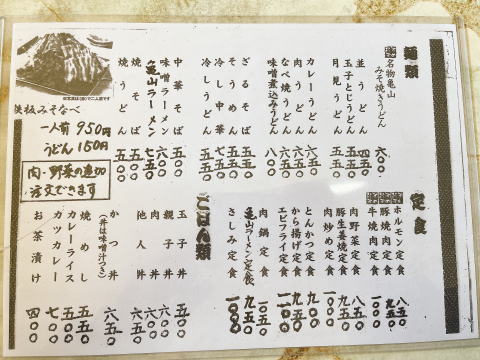 麺類
名物亀山
みそ焼きうどん 六〇〇
並うどん 四五〇
玉子とじうどん 五五〇
月見うどん 五五〇
カレーうどん
肉うどん
なべ焼うどん
味噌煮込みうどん 八〇〇
ざるそば
そうめん
冷し中華
冷しうどん
中華そば 五五〇
味噌ラーメン 六〇〇
亀山ラーメン 七五〇
焼そば 五五〇
焼うどん 五五〇
鉄板みそなべ
一人前 950円
うどん 150円
肉・野菜の追加
注文できます
定食
ホルモン定食 八五〇
豚焼肉定食 九五〇
牛焼肉定食
肉野菜定食 八五〇
豚生姜焼定食 九五〇
肉炒め定食
とんかつ定食 九〇〇
から揚げ定食
エビフライ定食
肉鍋定食
亀山ラーメン定食 九五〇
さしみ定食
ごはん類
玉子丼 五五〇
親子丼 六五〇
肉丼
他人丼
かつ丼 六五〇
(丼は味噌汁つき)
焼めし 五五〇
カレーライス
カツカレー 七〇〇
お茶漬け 四〇〇